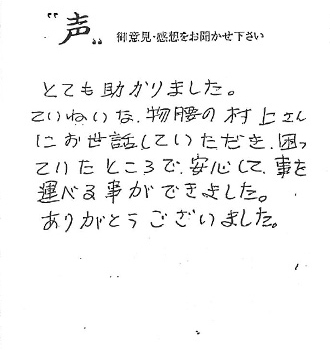 "声" 御意見・感想をお聞かせ下さい
とても助かりました。
ていねいな、物腰の村上さん
にお世話していただき、困っ
ていたところで、安心して、事を
運べる事ができました。
ありがとうございました。